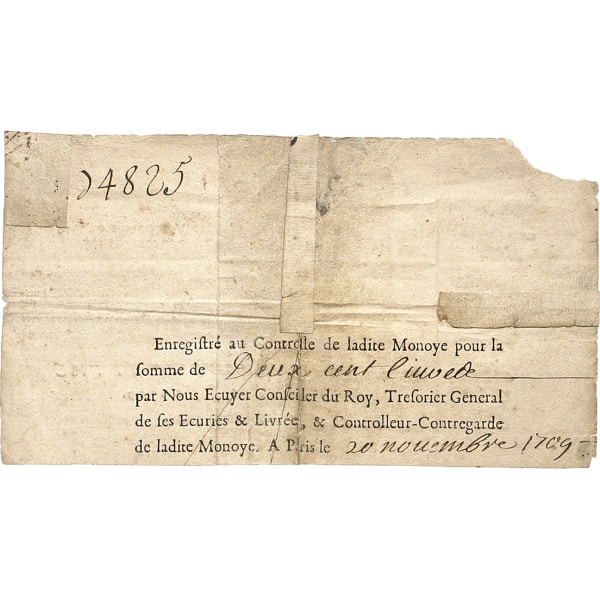 )4825
Enregistré au Controlle de ladite Monoye pour la
somme de Deux cent
par Nous Ecuyer Conseiller du Roy, Tresorier General
de ses Ecuries & Livrée, & Controlleur-Contregarde
de ladite Monoye. A Paris le 20 novembre 1709